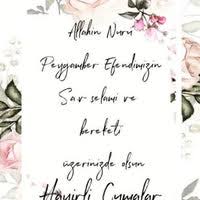 Allahın Nuru
Peygamber Efendimizin
S.a.v selamı ve
bereketi
üzerinizde olsun
Hayırlı Cumalar